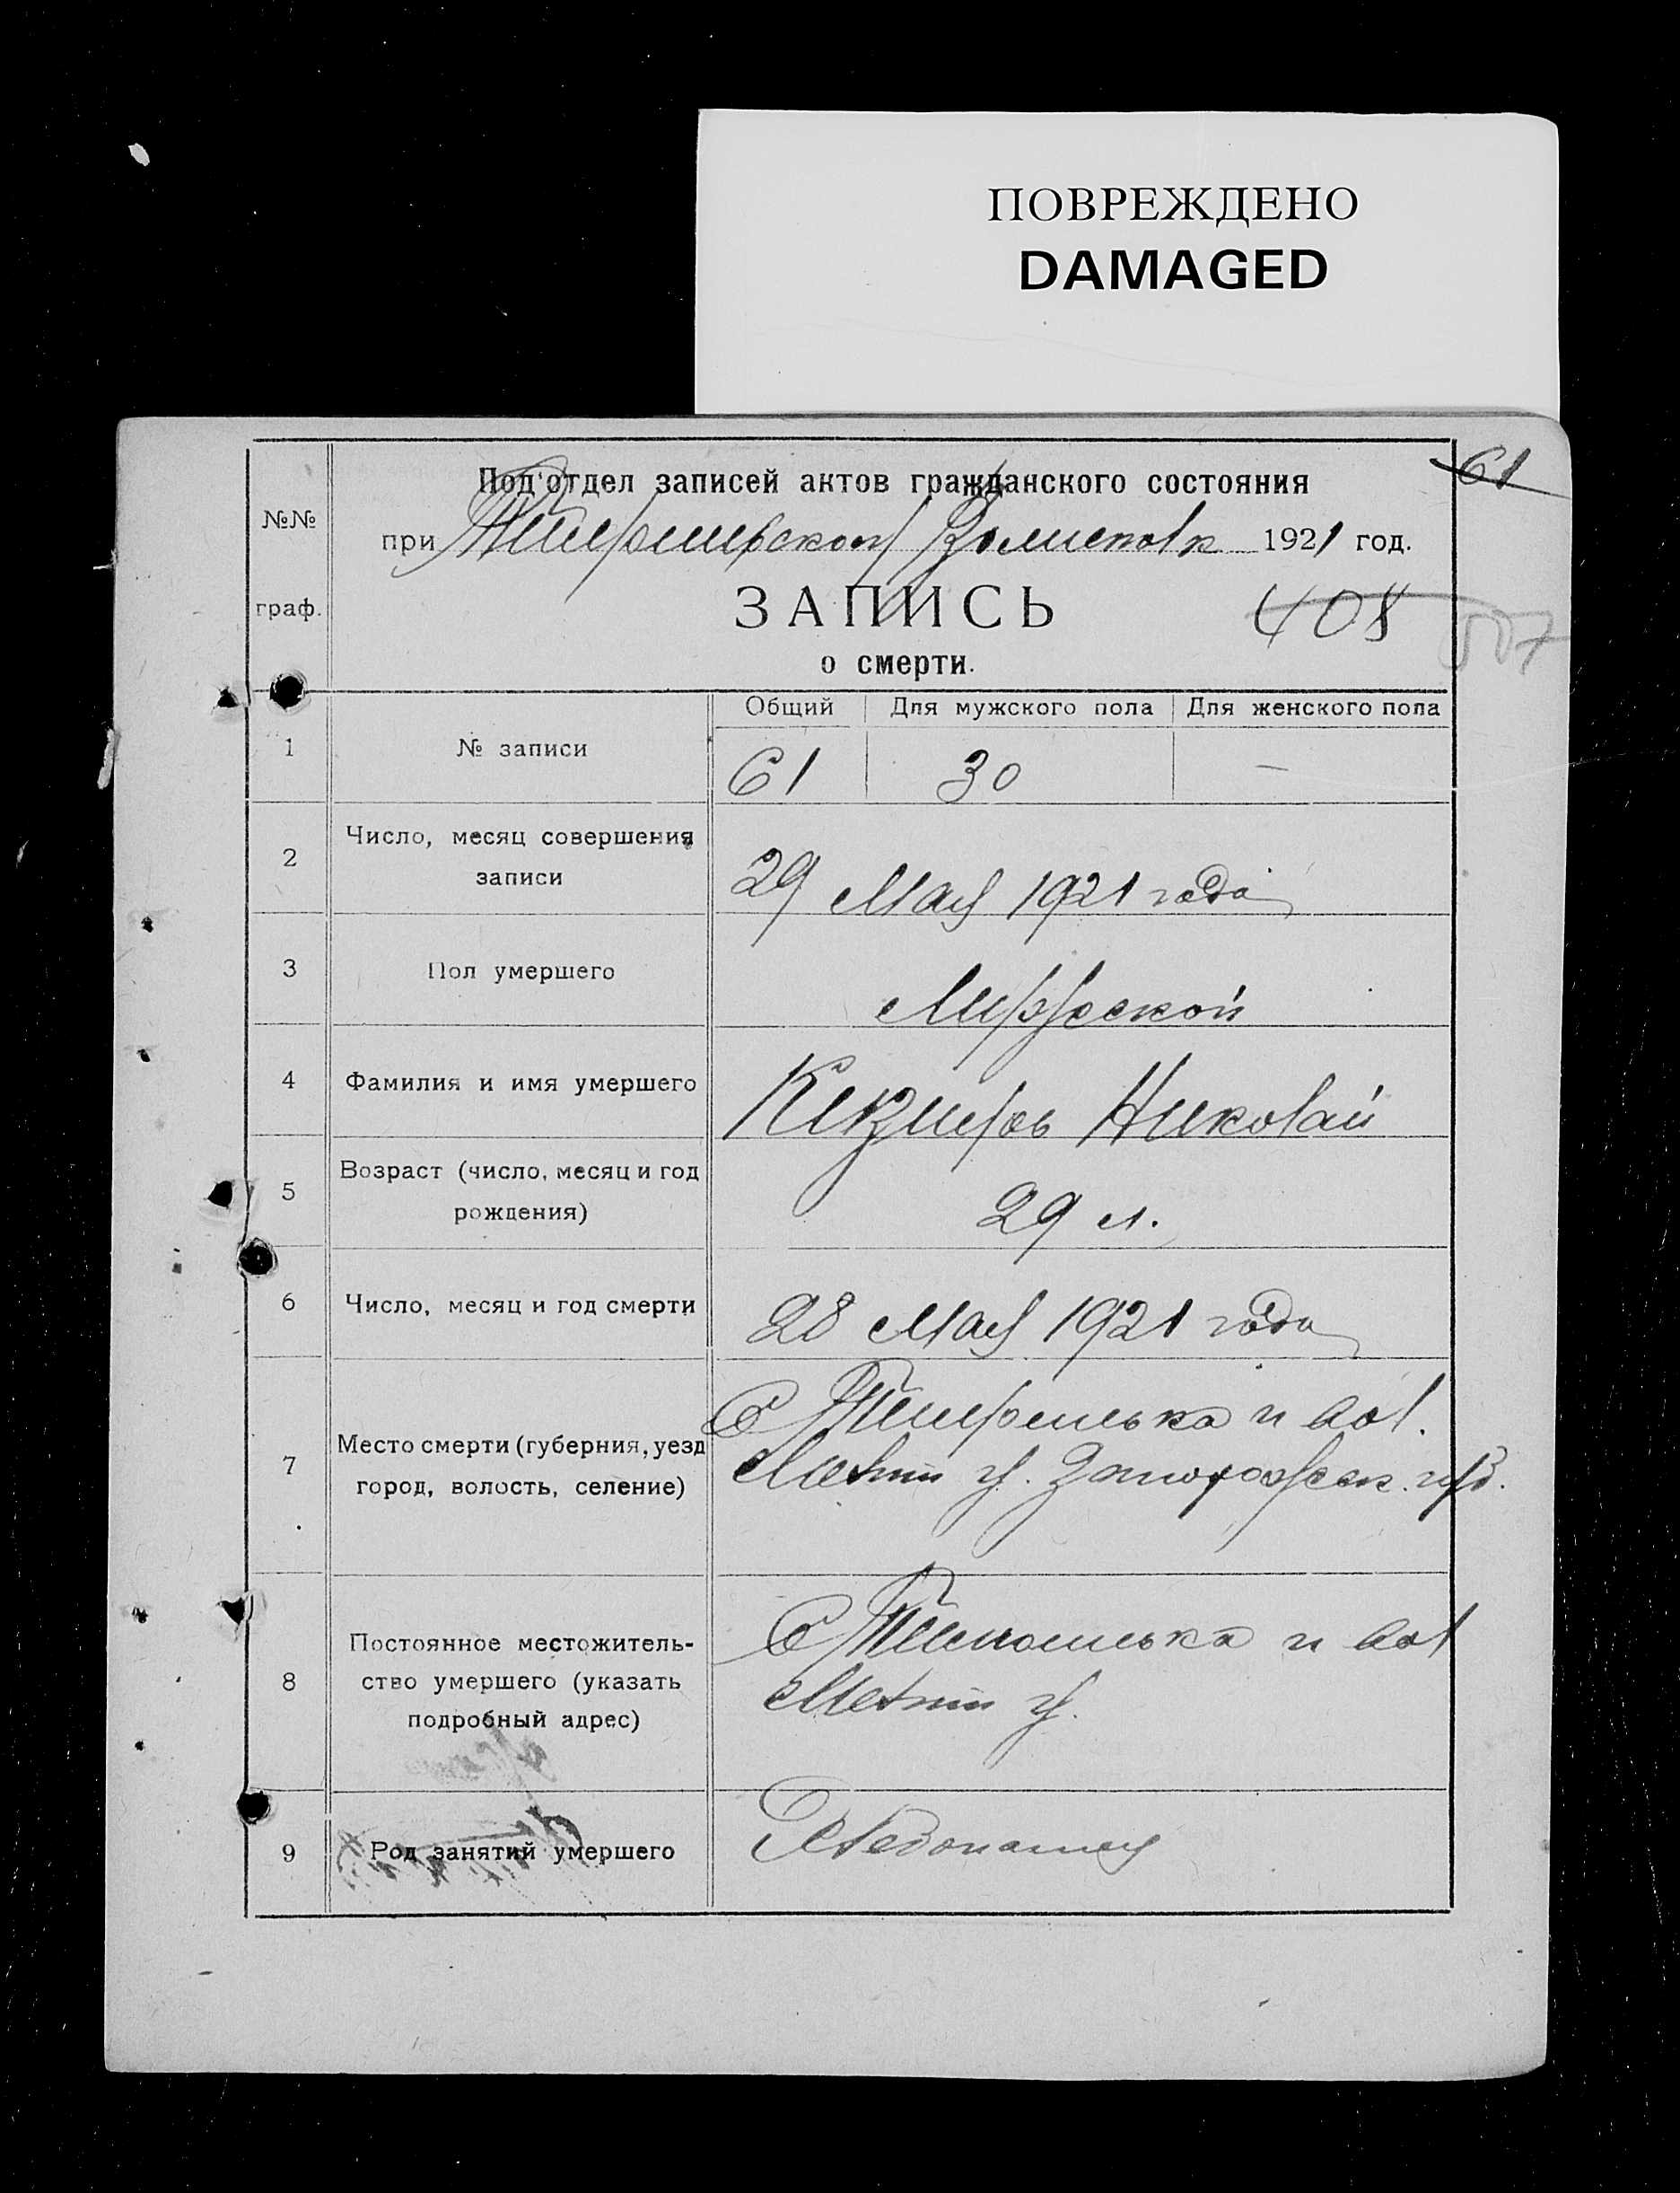 ПОВРЕЖДЕНО
DAMAGED
61
Под'отдел записей актов гражданского состояния
№№
при 1921 год.
граф.
ЗАПИСЬ
408
507
о смерти.
Общий Для мужского пола Для женского пола
1 № записи 61 30 —
2 Число, месяц совершения
записи
29 Мая 1921 года
3 Пол умершего Мужской
4 Фамилия и имя умершего Николай
5 Возраст (число, месяц и год
рождения)
29 л.
6 Число, месяц и год смерти 28 Мая 1921 года
7 Место смерти (губерния, уезд
город, волость, селение)
С и вол.
Мелит у. Запорожск. губ.
8 Постоянное местожитель-
ство умершего (указать
подробный адрес)
С и вол
Мелит у.
9 Род занятий умершего